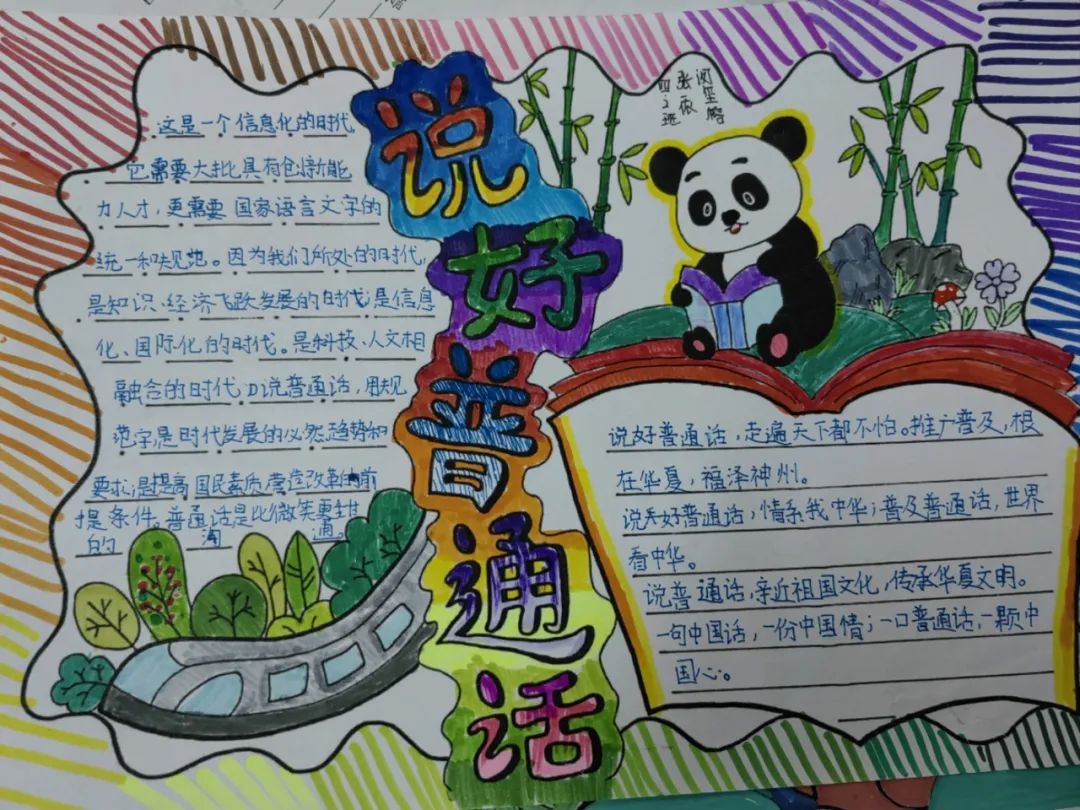 这是一个信息化的时代,
它需要大批具有创新能
力人才,更需要国家语言文字的
统一和规范。因为我们所处的时代,
是知识、经济飞跃发展的时代;是信息
化、国际化的时代。是科技、人文相
融合的时代 说普通话,用规
范字,是时代发展的必然趋势和
要求;是提高国民素质,营造改革的前
提条件。普通话是比微笑更甜
的 沟 通。
说好普通话
四2班
说好普通话,走遍天下都不怕。推广普及,根
在华夏,福泽神州。
说好普通话,情系我中华;普及普通话,世界
看中华。
说普通话,亲近祖国文化,传承华夏文明。
一句中国话,一份中国情;一口普通话,一颗中
国心。